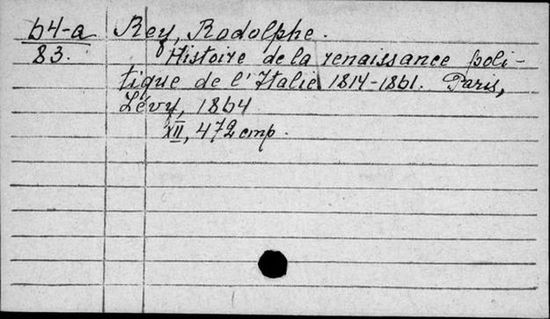 64-a Rey, Rodolphe.
83. Histoire de la renaissance poli-
tique de l'Italie 1814-1861. Paris,
Lévy, 1864
XII, 472 cmp.